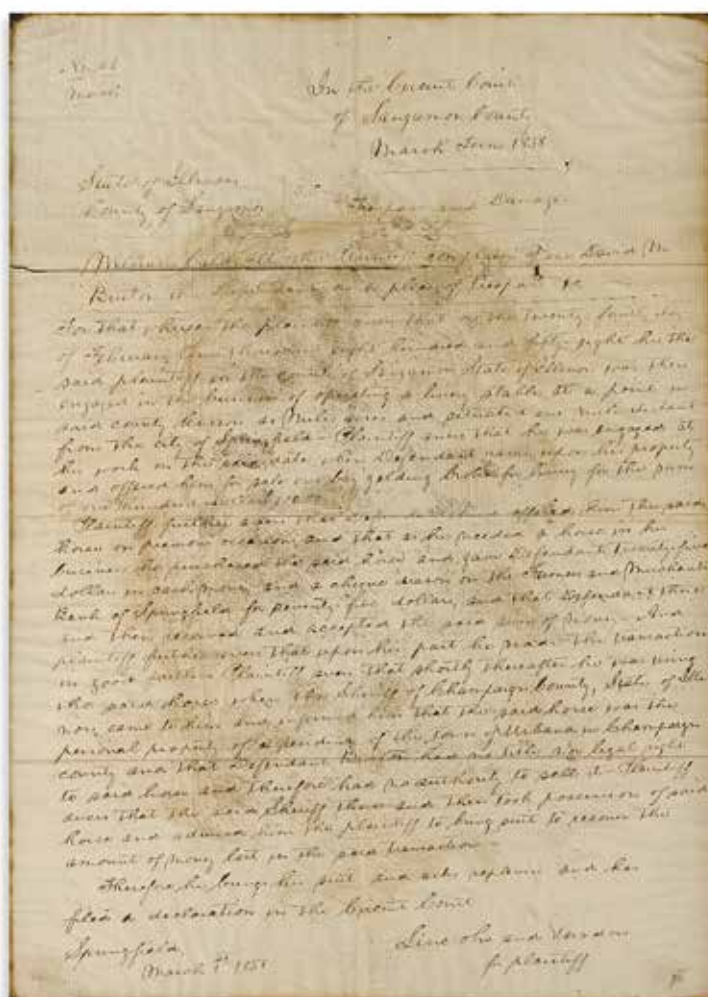 In the Circuit Court
of Sangamon County
March Term 1858
State of Illinois
County of Sangamon
Trespass and Damage
the Plaintiff complains of one David M
the Defendant on a plea of Trespass &c
For that, the plaintiff avers that on the twenty day
of February eight hundred and fifty eight he the
said plaintiff in the County of Sangamon State of Illinois was then
engaged in the business of operating a livery stable at a point in
said county known as and situated one mile distant
from the city of Springfield - Plaintiff avers that he was engaged at
his work on the said date when Defendant came upon his property
and offered him for sale one bay gelding broke for livery for the sum
of one hundred
Plaintiff further avers that offered him the said
horse on previous occasion and that as he needed a horse in his
business he purchased the said horse and gave Defendant twenty five
dollars in cash money and a cheque drawn on the Farmers and Merchants
Bank of Springfield for seventy five dollars, and that Defendant then
and there received and accepted the said sum of money - And
plaintiff further avers that upon his part he made the transaction
in good faith - Plaintiff avers that shortly thereafter he was using
the said horse when the Sheriff of Champaign County, State of Illi
nois, came to him and informed him that the said horse was the
personal property of a resident of the town of Urbana in Champaign
county and that Defendant had no title nor legal right
to said horse and therefore had no authority to sell it - Plaintiff
avers that the said Sheriff then and there took possession of said
horse and advised him the plaintiff to bring suit to recover the
amount of money lost in the said transaction -
Therefore he brings his suit and asks and has
filed a declaration in the Circuit Court
Springfield
March 1st 1858
Lincoln and Herndon
for plaintiff